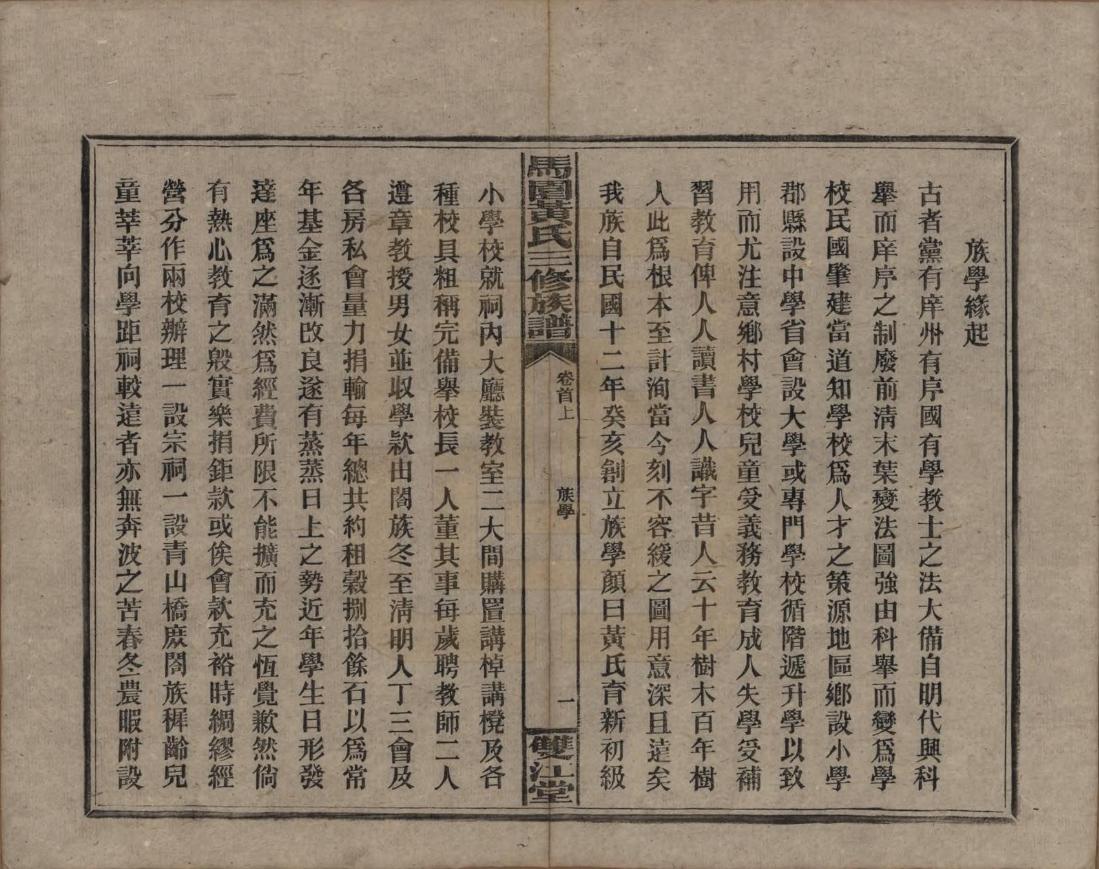 族學緣起
古者黨有庠州有序國有學教士之法大備自明代興科
舉而庠序之制廢前淸末葉變法圖強由科舉而變爲學
校民國肇建當道知學校爲人才之策源地區鄉設小學
郡縣設中學省會設大學或專門學校循階遞升學以致
用而尤注意鄉村學校兒童受義務教育成人失學受補
習教育俾人人讀書人人識字昔人云十年樹木百年樹
人此爲根本至計洵當今刻不容緩之圖用意深且遠矣
我族自民國十二年癸亥創立族學顏曰黃氏育新初級
馬園黃氏三修族譜
卷首上
族學
一
雙江堂
小學校就祠內大廳裝教室二大間購置講棹講櫈及各
種校具粗稱完備舉校長一人董其事每歲聘教師二人
遵章教授男女並収學欵由閤族冬至淸明人丁三會及
各房私會量力捐輸每年總共約租穀捌拾餘石以爲常
年基金逐漸改良遂有蒸蒸日上之勢近年學生日形發
達座爲之滿然爲經費所限不能擴而充之恆覺歉然倘
有熱心教育之殷實樂捐鉅款或俟會款充裕時綢繆經
營分作兩校辦理一設宗祠一設青山橋庶閤族穉齡兒
童莘莘向學距祠較遠者亦無奔波之苦春冬農暇附設